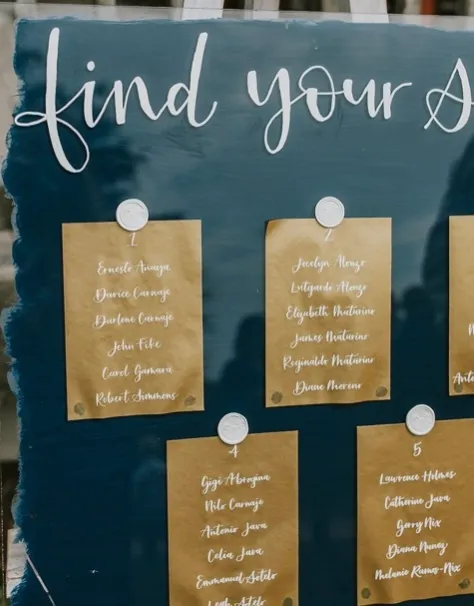 find your s
1
Ernesto Amaya
Darice Carnaje
Darlene Carnaje
John Fike
Carol Gamara
Robert Simmons
2
Jocelyn Alonzo
Lutgardo Alonzo
Elizabeth Maturino
James Maturino
Reginaldo Maturino
Diane Moreno
4
Gigi Abrojina
Nilo Carnaje
Antonio Java
Celia Java
Emmanuel Sotelo
Leah Sotelo
5
Lawrence Holmes
Catherine Java
Gerry Nix
Diana Nunez
Melanie Ramas-Nix